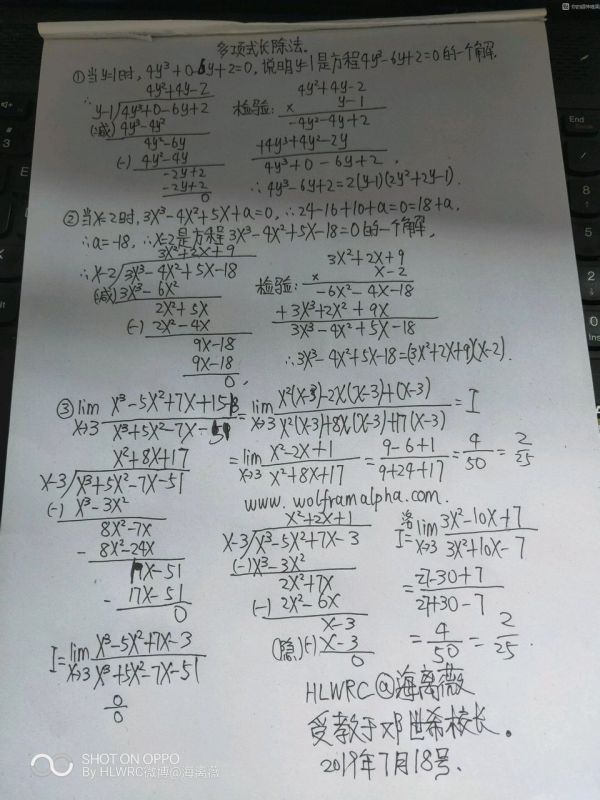 多项式长除法.
①当y=1时, 4y³+0-6y+2=0, 说明y=1是方程4y³-6y+2=0的一个解.
4y²+4y-2
∴ y-1√4y³+0-6y+2
(减) 4y³-4y²
4y²-6y
(-) 4y²-4y
-2y+2
-2y+2
0
检验:
4y²+4y-2
× y-1
-4y²-4y+2
+4y³+4y²-2y
4y³+0-6y+2,
∴ 4y³-6y+2=2(y-1)(2y²+2y-1).
②当x=2时, 3x³-4x²+5x+a=0, ∴24-16+10+a=0=18+a,
∴a=-18, ∴x=2是方程3x³-4x²+5x-18=0的一个解,
3x²+2x+9
∴ x-2√3x³-4x²+5x-18
(减) 3x³-6x²
2x²+5x
(-) 2x²-4x
9x-18
9x-18
0,
检验:
3x²+2x+9
× x-2
-6x²-4x-18
+3x³+2x²+9x
3x³-4x²+5x-18
∴3x³-4x²+5x-18=(3x²+2x+9)(x-2).
③ lim x→3 (x³-5x²+7x-3)/(x³+5x²-7x-51) = lim x→3 (x²(x-3)-2x(x-3)+(x-3))/(x²(x-3)+8x(x-3)+17(x-3)) = I
= lim x→3 (x²-2x+1)/(x²+8x+17) = (9-6+1)/(9+24+17) = 4/50 = 2/25
www.wolframalpha.com.
x²+8x+17
x-3√x³+5x²-7x-51
(-) x³-3x²
8x²-7x
- 8x²-24x
17x-51
- 17x-51
0
x²-2x+1
x-3√x³-5x²+7x-3
(-) x³-3x²
-2x²+7x
(-) -2x²+6x
x-3
(隐)(-) x-3
0
I 洛= lim x→3 (3x²-10x+7)/(3x²+10x-7)
= (27-30+7)/(27+30-7)
= 4/50 = 2/25.
I = lim x→3 (x³-5x²+7x-3)/(x³+5x²-7x-51)
0/0
HLWRC@海离薇
受教于邓世希校长。
2019年7月18号.
SHOT ON OPPO
By HLWRC微博@海离薇
End